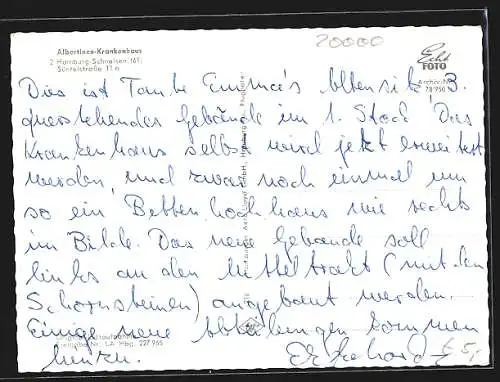 Albertinen-Krankenhaus
2 Hamburg-Schnelsen (61)
Süntelstraße 11 a
20000
Echt
FOTO
Archiv-Nr.
78 950
Dies ist Tante Emma's Altensitz, 3.
querstehendes Gebäude im 1. Stock. Das
Krankenhaus selbst wird jetzt erweitert
werden, und zwar noch einmal um
so ein Bettenhochhaus wie rechts
im Bilde. Das neue Gebäude soll
links an den Mitteltrakt (mit den
Schornsteinen) angebaut werden.
Einige neue Abteilungen kommen
hinzu. Ekkehard
Freigabe Nr. LA Hbg. 227 965
€ 5,-